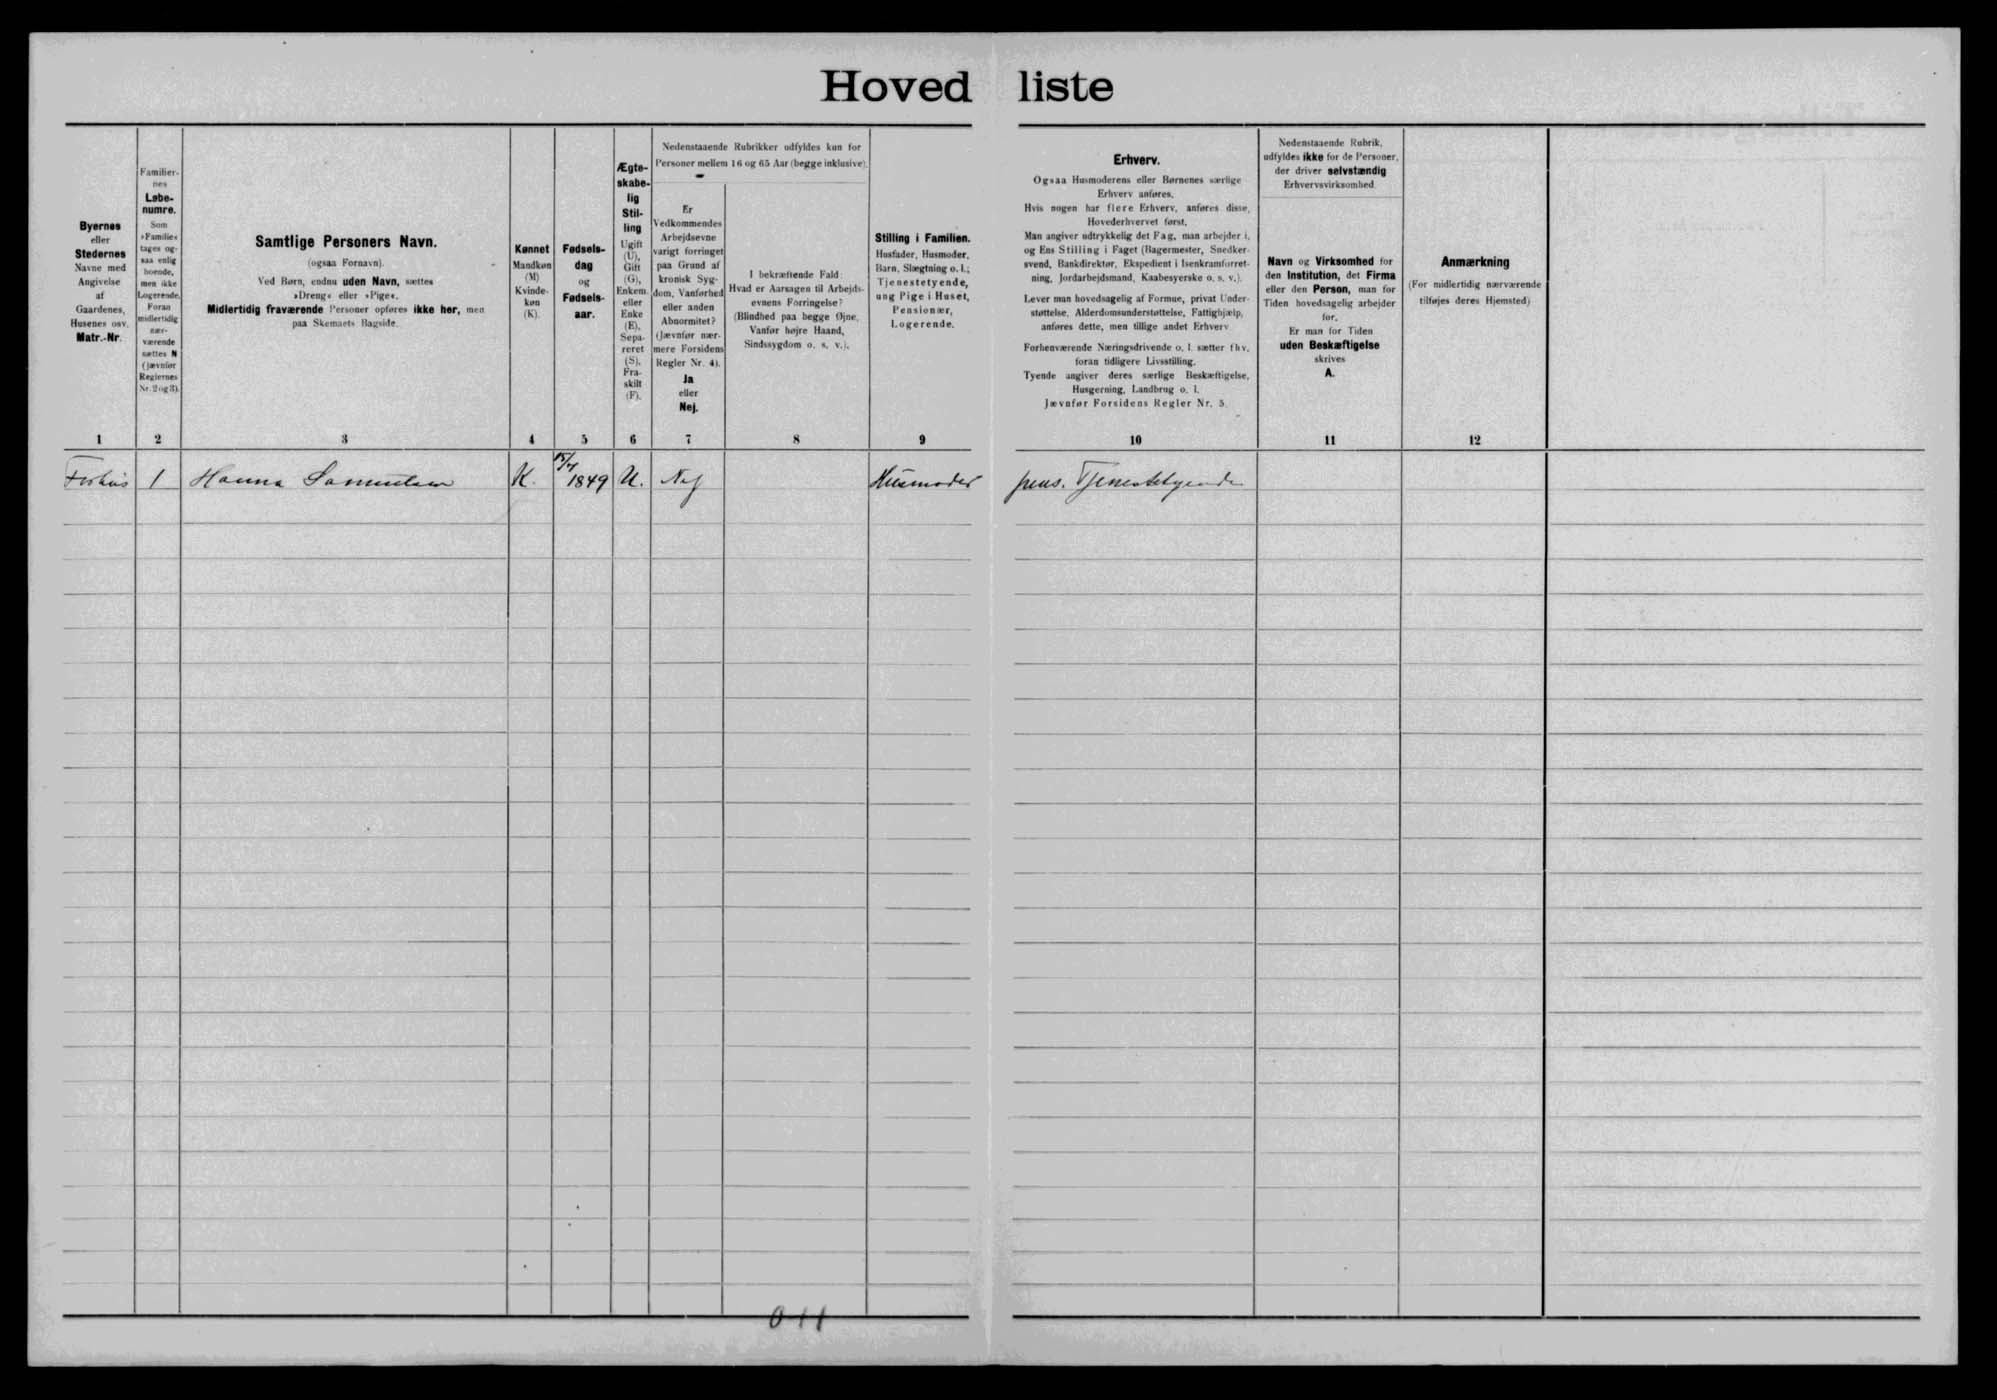 Hovedliste
Byernes
eller
Stedernes
Navne med
Angivelse
af
Gaardenes,
Husenes osv.
Matr.-Nr.
1
Familier-
nes
Løbe-
numre.
Som
»Familie«
tages og-
saa enlig
boende,
men ikke
Logerende.
Foran
midlertidig
nær-
værende
sættes N
(jævnfør
Reglernes
Nr. 2 og 3).
2
Samtlige Personers Navn.
(ogsaa Fornavn).
Ved Børn, endnu uden Navn, sættes
»Dreng« eller »Pige«.
Midlertidig fraværende Personer opføres ikke her, men
paa Skemaets Bagside.
3
Kønnet
Mandkøn
(M)
Kvinde-
køn
(K).
4
Fødsels-
dag
og
Fødsels-
aar.
5
Ægte-
skabe-
lig
Stil-
ling
Ugift
(U),
Gift
(G),
Enkem.
eller
Enke
(E),
Sepa-
reret
(S),
Fra-
skilt
(F).
6
Nedenstaaende Rubrikker udfyldes kun for
Personer mellem 16 og 65 Aar (begge inklusive).
Er
Vedkommendes
Arbejdsevne
varigt forringet
paa Grund af
kronisk Syg-
dom, Vanførhed
eller anden
Abnormitet?
(Jævnfør nær-
mere Forsidens
Regler Nr. 4).
Ja
eller
Nej.
7
I bekræftende Fald:
Hvad er Aarsagen til Arbejds-
evnens Forringelse?
(Blindhed paa begge Øjne,
Vanfør højre Haand,
Sindssygdom o. s. v.).
8
Stilling i Familien.
Husfader, Husmoder,
Barn, Slægtning o. l.;
Tjenestetyende,
ung Pige i Huset,
Pensionær,
Logerende.
9
Erhverv.
Ogsaa Husmoderens eller Børnenes særlige
Erhverv anføres.
Hvis nogen har flere Erhverv, anføres disse,
Hovederhvervet først.
Man angiver udtrykkelig det Fag, man arbejder i,
og Ens Stilling i Faget (Bagermester, Snedker-
svend, Bankdirektør, Ekspedient i Isenkramforret-
ning, Jordarbejdsmand, Kaabesyerske o. s. v.).
Lever man hovedsagelig af Formue, privat Under-
støttelse, Alderdomsunderstøttelse, Fattighjælp,
anføres dette, men tillige andet Erhverv.
Forhenværende Næringsdrivende o. l. sætter fhv.
foran tidligere Livsstilling.
Tyende angiver deres særlige Beskæftigelse,
Husgerning, Landbrug o. l.
Jævnfør Forsidens Regler Nr. 5.
10
Nedenstaaende Rubrik,
udfyldes ikke for de Personer,
der driver selvstændig
Erhvervsvirksomhed
Navn og Virksomhed for
den Institution, det Firma
eller den Person, man for
Tiden hovedsagelig arbejder
for.
Er man for Tiden
uden Beskæftigelse
skrives
A.
11
Anmærkning
(For midlertidig nærværende
tilføjes deres Hjemsted)
12
Forhus 1 Hanna Samuelsen K. 15/7 1849 U. Nej Husmoder pens. Tjenestetyende
011